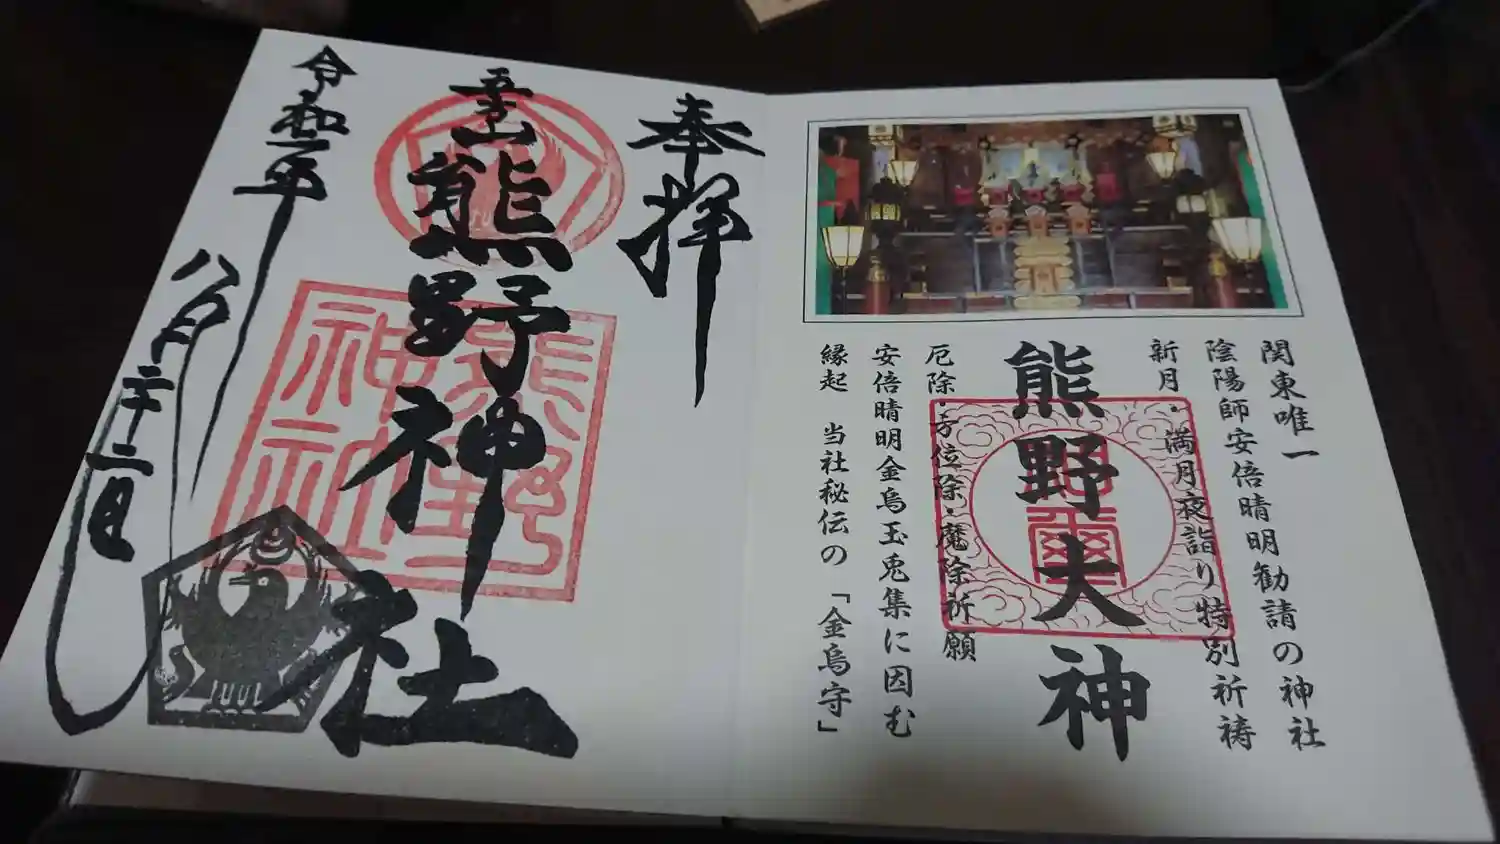 関東唯一
陰陽師安倍晴明勧請の神社
新月・満月夜詣り特別祈祷
熊野大神
厄除・方位除・魔除祈願
安倍晴明金烏玉兎集に因む
縁起 当社秘伝の「金烏守」
奉拝
熊野神社
熊野
神社
八月二十二日